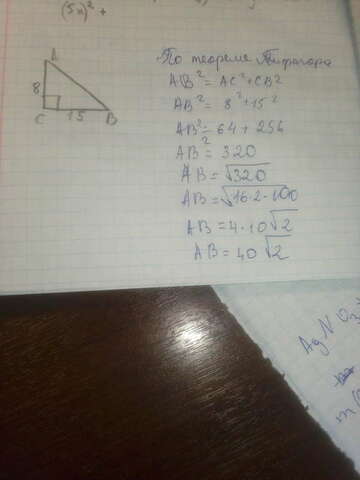 (5x)² +
A
8
C 15 B
По теореме Пифагора
AB² = AC² + CB²
AB² = 8² + 15²
AB² = 64 + 256
AB² = 320
AB = √320
AB = √16·2·100
AB = 4·10√2
AB = 40√2
AgNO₃